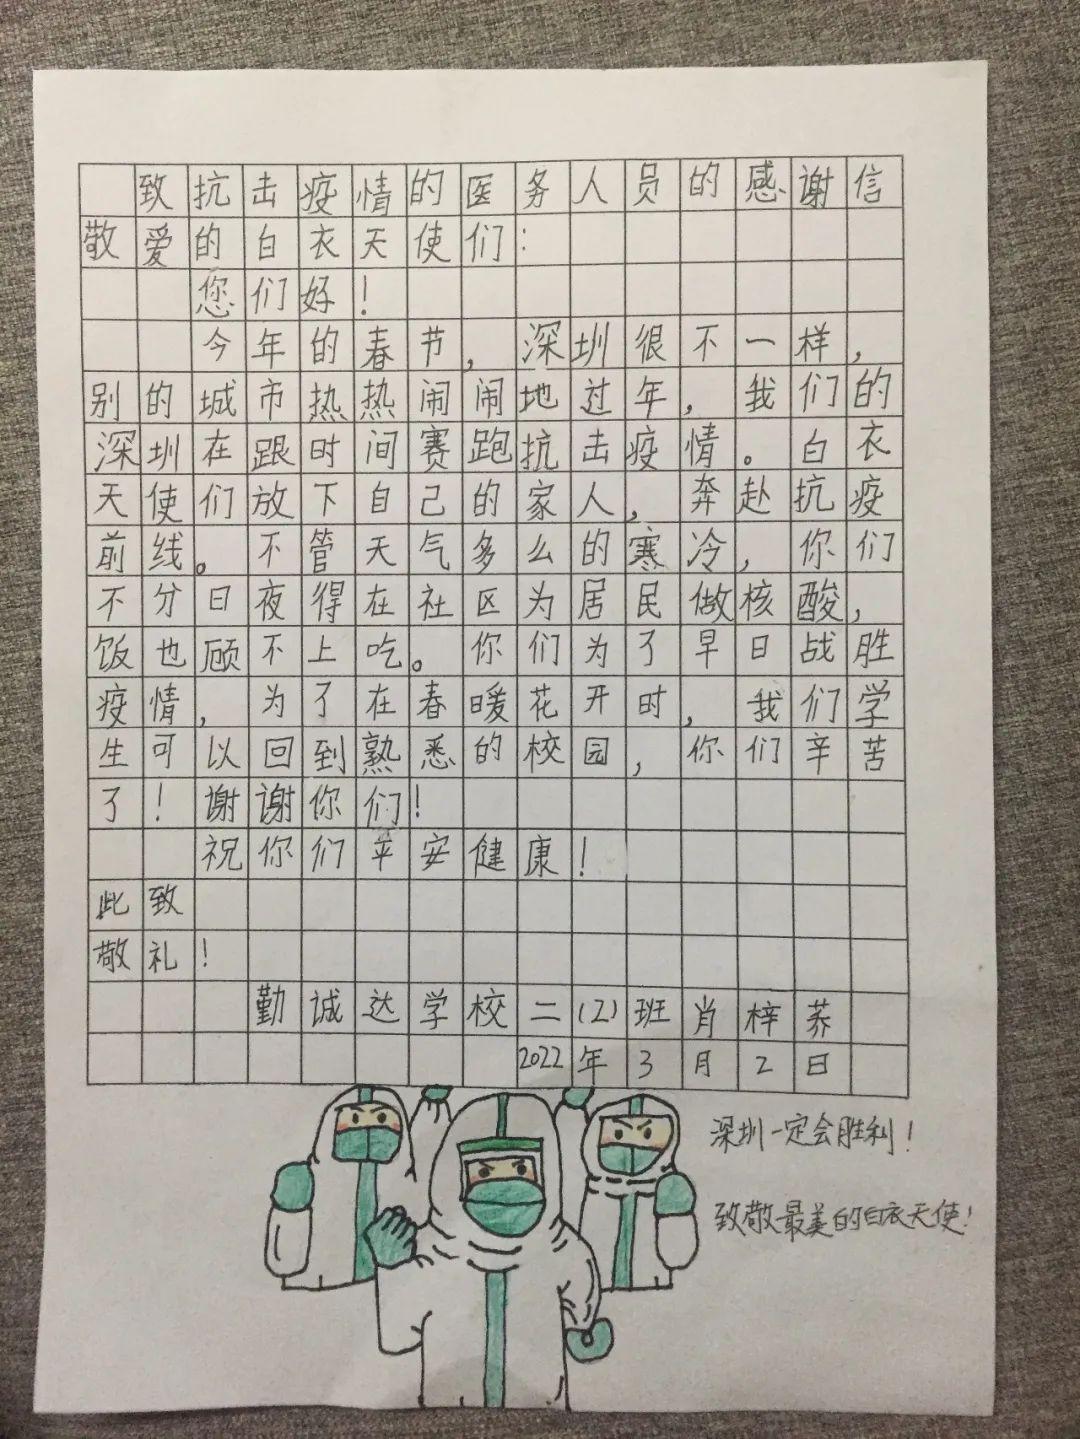 致抗击疫情的医务人员的感谢信
敬爱的白衣天使们：
您们好！
今年的春节，深圳很不一样，
别的城市热热闹闹地过年，我们的
深圳在跟时间赛跑抗击疫情。白衣
天使们放下自己的家人，奔赴抗疫
前线。不管天气多么的寒冷，你们
不分日夜得在社区为居民做核酸，
饭也顾不上吃。你们为了早日战胜
疫情，为了在春暖花开时，我们学
生可以回到熟悉的校园，你们辛苦
了！谢谢你们！
祝你们平安健康！
此致
敬礼！
勤诚达学校二(2)班肖梓荞
2022年3月2日
深圳一定会胜利！
致敬最美的白衣天使！